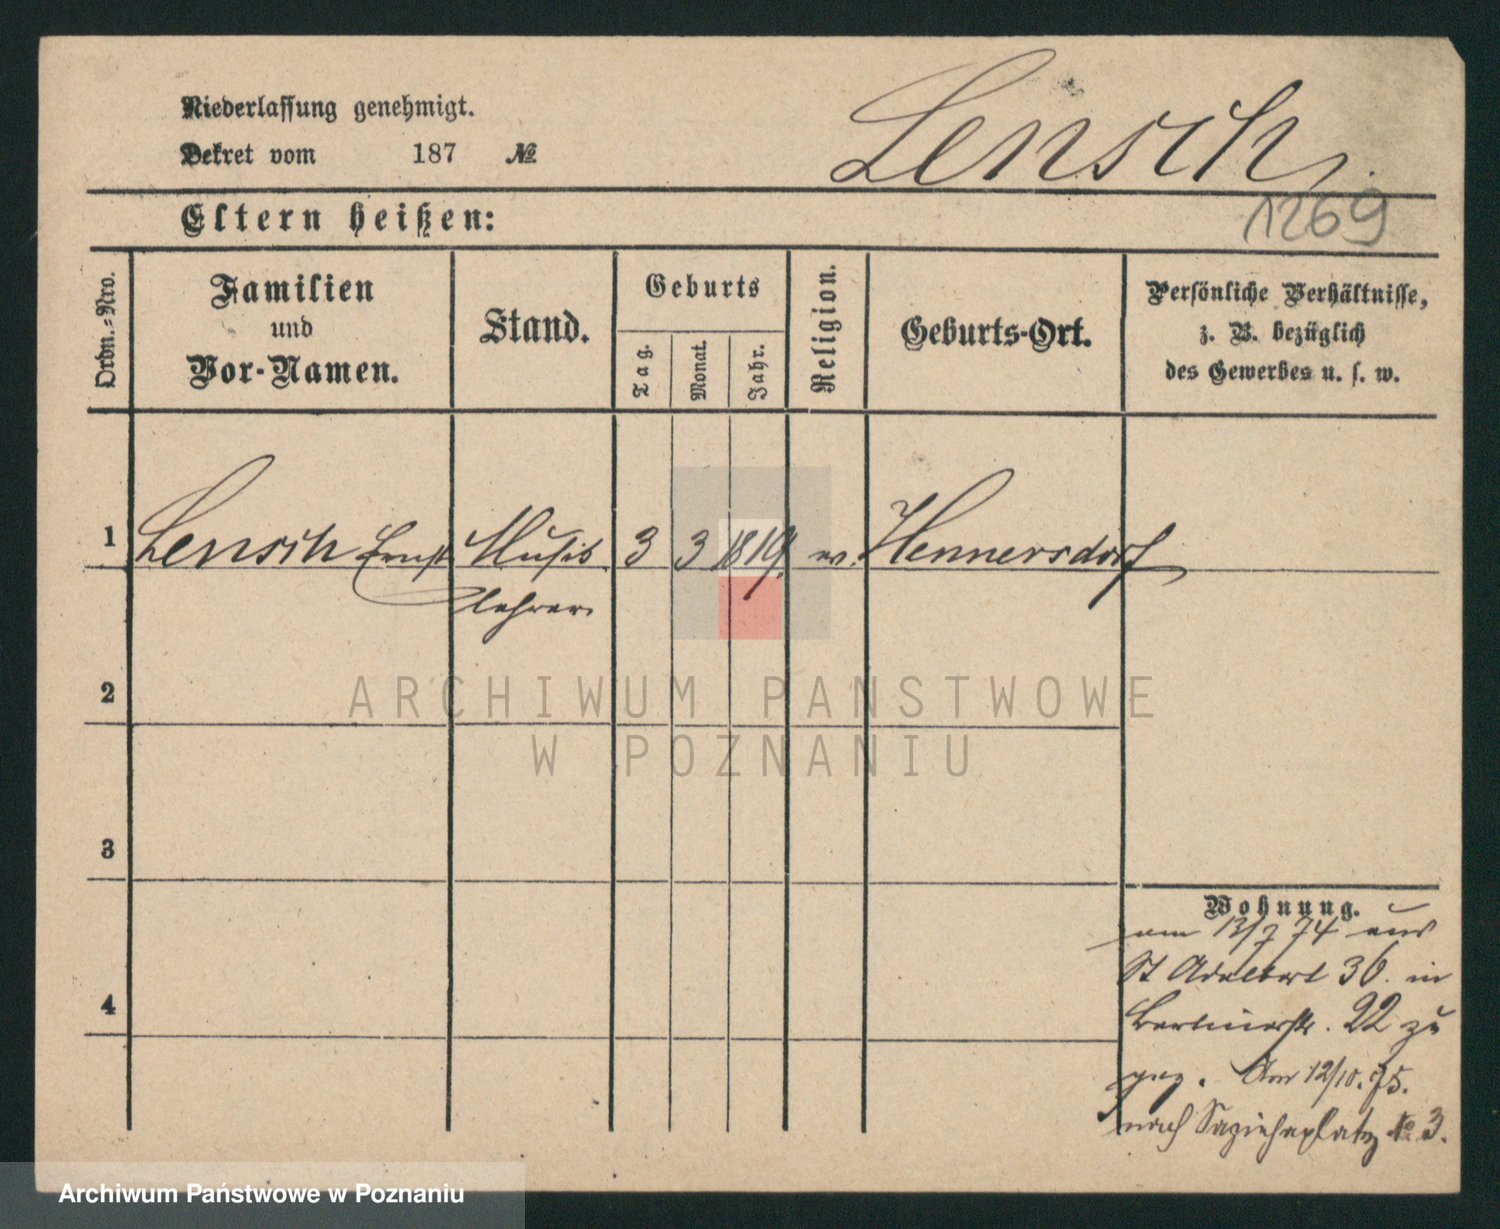 Niederlassung genehmigt.
Dekret vom 187 №
Lensch
1269
Eltern heißen:
Ordn.-Nro.
Familien und Vor-Namen.
Stand.
Geburts
Tag.
Monat.
Jahr.
Religion.
Geburts-Ort.
Persönliche Verhältnisse,
z. B. bezüglich
des Gewerbes u. s. w.
1 Lensch Ernst Musik 3 3 1819. ev. Hennersdorf
lehrer
ARCHIWUM PAŃSTWOWE
W POZNANIU
2
3
4
Wohnung.
am 13/7 74 aus
St Adalbert 36. in
Berlinerstr. 22 zu
gez. Am 12/10. 75.
nach Sapiehaplatz № 3.
Archiwum Państwowe w Poznaniu